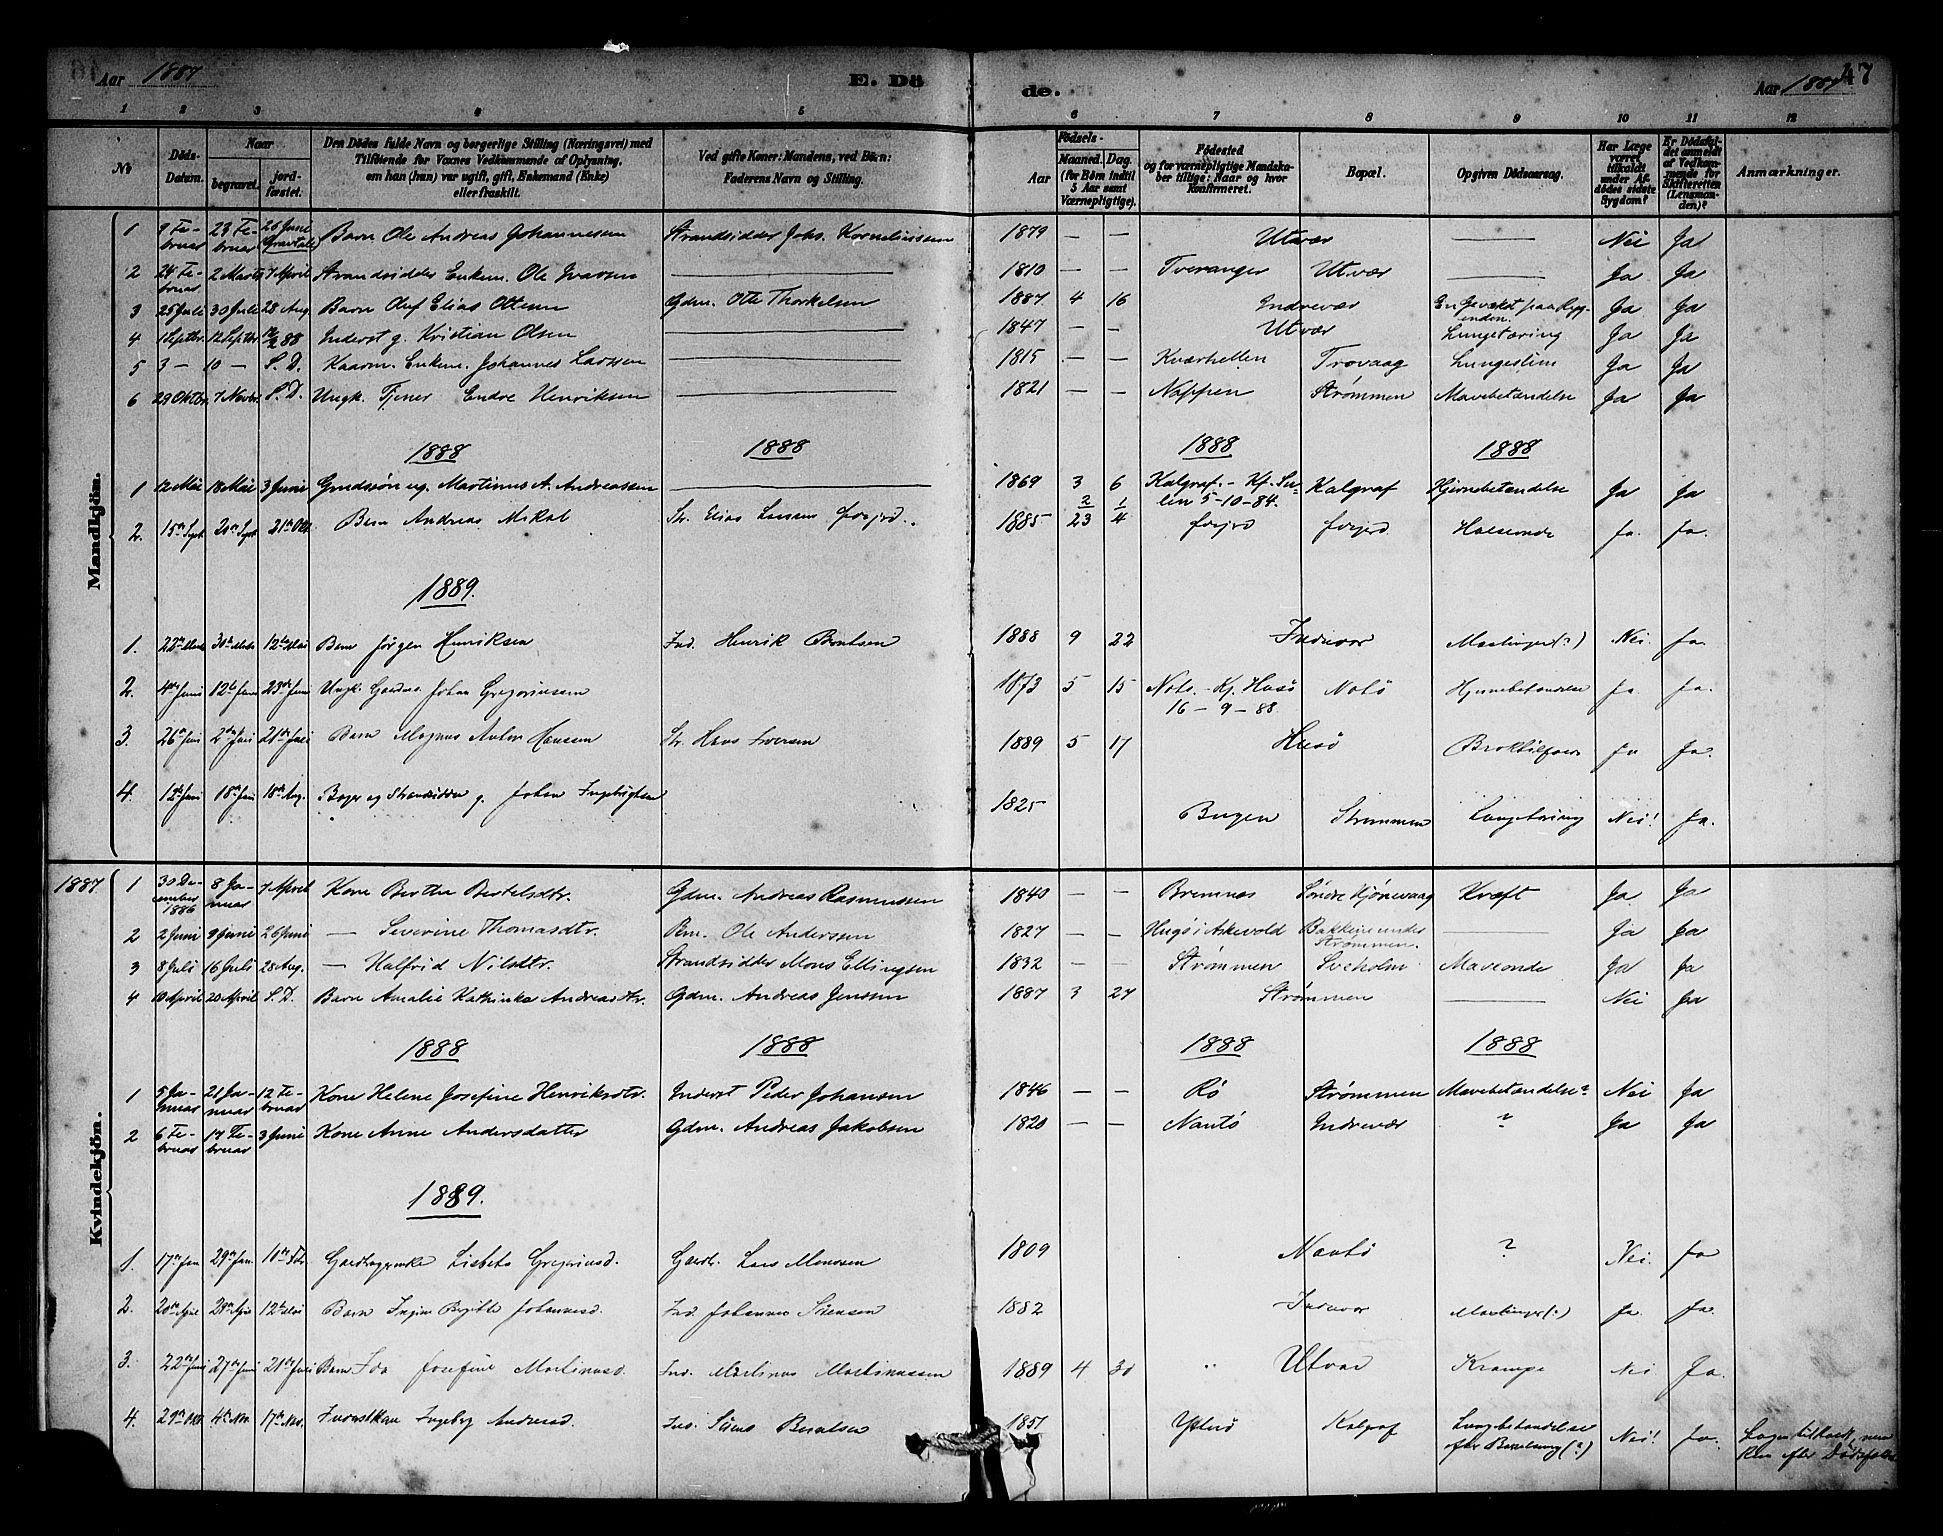 Aar 1887
E. Dö
de.
Aar 1887
47
1 2 3 4 5 6 7 8 9 10 11 12
No
Döds-Datum.
Naar
begravet.
jordfæstet.
Den Dödes fulde Navn og borgerlige Stilling (Næringsvei) med
Tilföiende for Voxnes Vedkommende af Oplysning,
om han (hun) var ugift, gift, Enkemand (Enke)
eller fraskilt.
Ved gifte Koner: Mandens, ved Börn:
Faderens Navn og Stilling.
Födsels-
Aar
Maaned.
Dag.
(for Börn indtil
5 Aar samt
Værnepligtige).
Födested
og for værnepligtige Mandskaber tillige: Naar og hvor
Konfirmeret.
Bopæl.
Opgiven Dödsaarsag.
Har Læge
været
tilkaldt
under Afdödes sidste
Sygdom?
Er Dödsfaldet anmeldt
af Vedkommende for
Skifteretten
(Lensmanden)?
Anmærkninger.
Mandkjön.
1 9 Februar 23 Februar 26 Juni Gravtale Barn Ole Andreas Johannesen Strandsidder Johs. Korneliussen 1879 — — Utvær — Nei Ja
2 24 Februar 2 Marts 7 April Strandsidder Enkem. Ole Ivarsen — 1810 — — Tveranger Utvær — Ja Ja
3 25 Juli 30 Juli 28 Aug. Barn Oluf Elias Ottesen Gdm. Otte Thorkelsen 1887 4 16 Indrevær En Gevækst paa Ryginden. Ja Ja
4 1 Septbr. 12 Septbr. 12/2 88 Inderst g. Kristian Olsen — 1847 — — Utvær Lungetæring Ja Ja
5 3 — 10 — S. D. Kaarm. Enkem. Johannes Larssen — 1815 — — Kværhellen Trovaag Lungesliim Ja Ja
6 29 Oktbr. 7 Novbr. S. D. Ungk. Tjener Endre Henriksen — 1821 — — Nappen Strømmen Mavebetændelse Ja Ja
1888 1888 1888 1888
1 12 Mai 18 Mai 3 Juni Grndssøn ug. Martinus A. Andreassen — 1869 3 6 Kalgraf. - Kf. Sulen 5-10-84. Kalgraf Hjernebetændelse Ja Ja
2. 15de Sept 20de Sept 21de Okt Barn Andreas Mikal Str. Elias Larsen 1885 2/23 1/4 Halsonde Ja. Ja.
1889.
1. 22de 30te 12te Mai Barn Jørgen Henriksen Ind. Henrik Berntsen 1888 9 22 Indrevær Mæslinger(?) Nei. Ja.
2. 4de Juni 12te Juni 23de Juni Ungk. Gaardm. Johan Gregoriussen 1873 5 15 Notø. - Kf. Husø 16 - 9 - 88. Notø Hjernebetændelse Ja. Ja.
3. 26de Juni 2den Juli 21de Juli Barn Magnus Anton Hansen Str. Hans Iversen 1889 5 17 Husø Broktilfælde Ja Ja.
4. 12te Juni 18de Juni 18de Aug. og Strandsidder g. Johan Ingebrigtsen 1825 Bugen Strømmen Lungetæring Nei! Ja.
Kvindekjön.
1887 1 30 December 1886 8 Januar 7 April Kone Berthe Bertelsdtr. Gdm. Andreas Rasmussen 1840 — — Bremnes Søndre Hjønevaag Kræft Ja Ja
2 2 Juni 9 Juni 26 Juni — Severine Thomasdtr. Bm. Ole Andersen 1827 — — Hugø i Askevold Bakkene under Strømmen. — Ja Ja
3 8 Juli 16 Juli 28 Aug. — Halfrid Nilsdtr. Strandsidder Mons Ellingsen 1832 — — Strømmen Sveholm Maveonde Ja Ja
4 10 April 20 April S. D. Barn Amalie Kathinka Andreasdtr. Gdm. Andreas Jenssen 1887 3 27 Strømmen — Nei Ja
1888 1888 1888 1888
1 5 Januar 21 Januar 12 Februar Kone Helene Josefine Henriksdtr. Inderst Peder Johansen 1846 — — Rø Strømmen Mavebetændelse? Nei Ja
2 6 Februar 17 Februar 3 Juni Kone Anne Andersdatter Gdm. Andreas Jakobsen 1820 — — Nautø Indrevær ? Ja Ja
1889.
1. 17de Jan 29de Jan. 10de Feb. Lisbeta Gregoriusd. Gaardbr. Lars Monssen 1809 Nautø ? Nei. Ja
2. 20de April 28de April 12te Mai Barn Ingine Birgitte Johannesd. Ind. Johannes Sørensen 1882 Indrevær Mæslinger(?) Ja. Ja.
3. 22de Juni 27de Juni 21de Juli Barn Ida Josefine Martinusd. Ind. Martinus Martinussen 1889 4 30 " Utvær Krampe Nei. Ja.
4. 29de Okt 4de Nov. 17de Nov. Inderstkone Ingeborg Andersd. Ind. Søens Berntsen 1851 Kalgraf Lungebetændelse efter Barselseng(?) Nei! Ja. Lægen tilkaldt, men kom efter Dödsfaldet